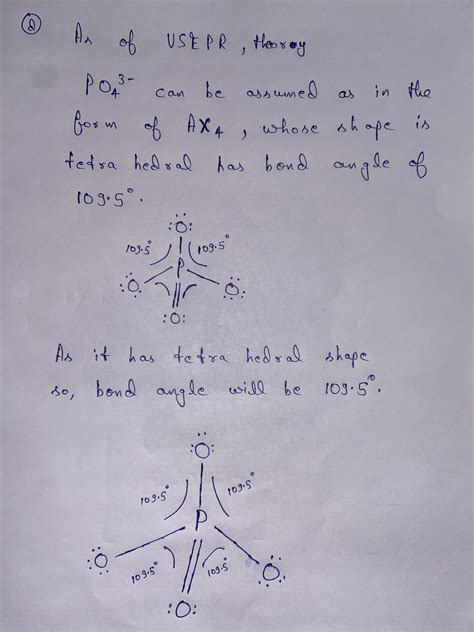 ②
As of VSEPR, theory
PO₄³⁻ can be assumed as in the
form of AX₄, whose shape is
tetra hedral has bond angle of
109.5°.
:Ö:
109.5° 109.5°
P
:Ö :Ö:
:O:
As it has tetra hedral shape
so, bond angle will be 109.5°.
:Ö:
109.5° 109.5°
P
:Ö 109.5° 109.5 :Ö:
:O: